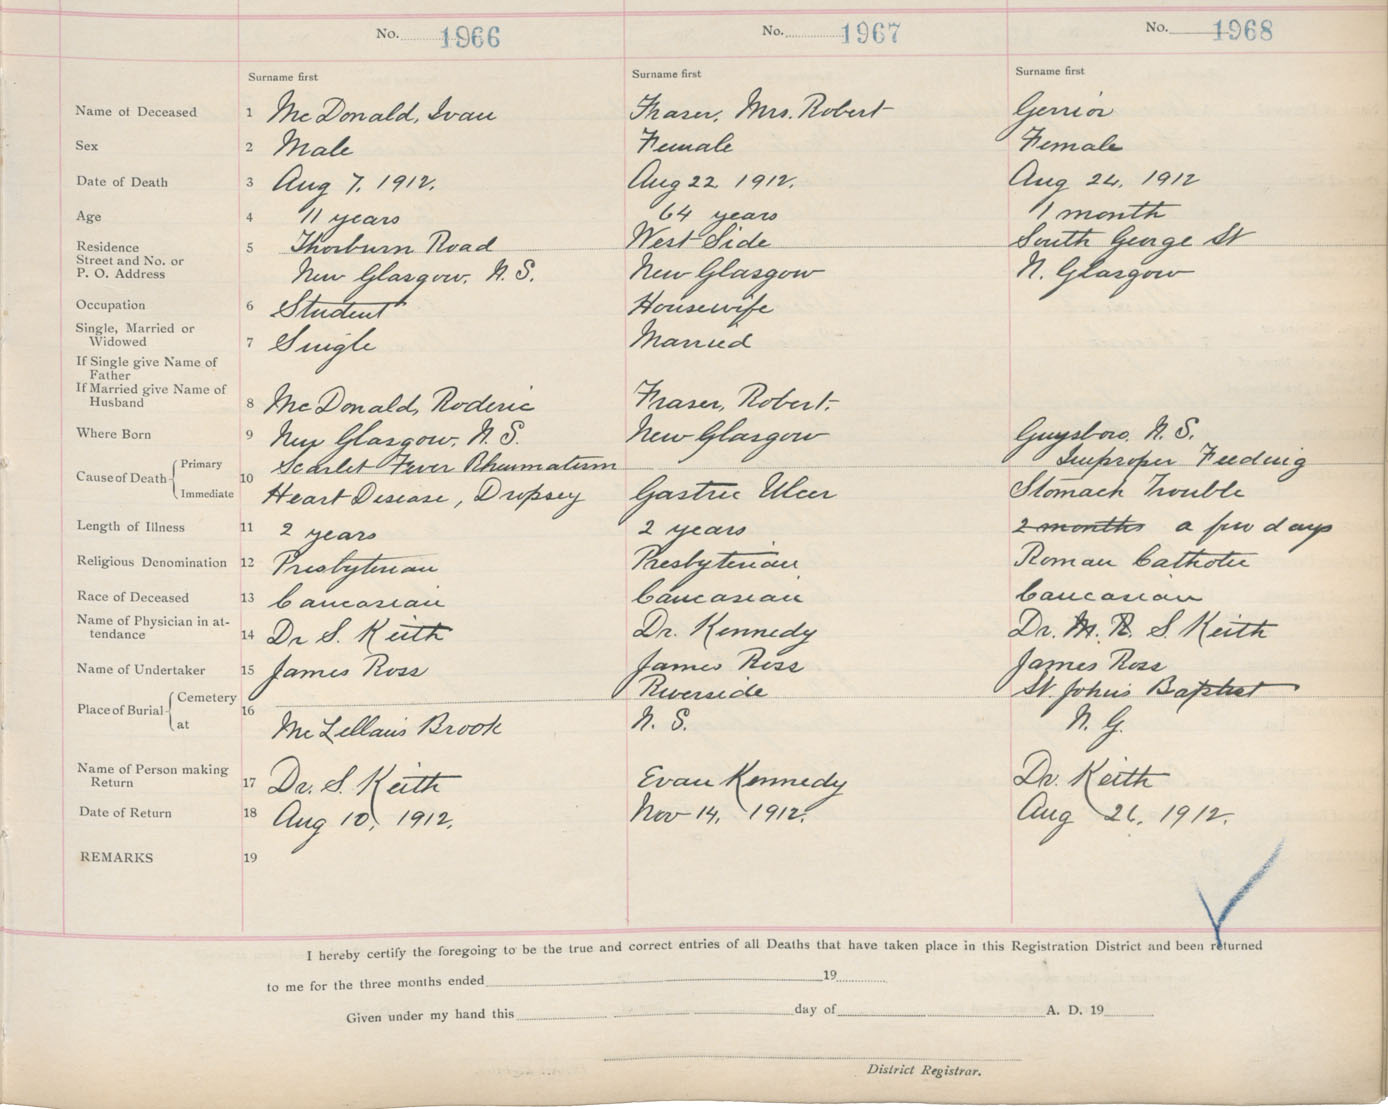 No. 1966 No. 1967 No. 1968
Surname first Surname first Surname first
Name of Deceased 1 McDonald, Ivan Fraser, Mrs. Robert Gerrior
Sex 2 Male Female Female
Date of Death 3 Aug 7, 1912. Aug 22 1912. Aug 24, 1912
Age 4 11 years 64 years 1 month
Residence 5 Thorburn Road West Side South George St
Street and No. or
P. O. Address New Glasgow, N. S. New Glasgow N. Glasgow
Occupation 6 Student Housewife
Single, Married or
Widowed 7 Single Married
If Single give Name of
Father
If Married give Name of
Husband 8 McDonald, Roderic Fraser, Robert.
Where Born 9 New Glasgow, N. S. New Glasgow Guysboro, N. S.
Cause of Death Primary 10 Scarlet Fever Rheumatism Improper Feeding
Immediate Heart Disease, Dropsey Gastric Ulcer Stomach Trouble
Length of Illness 11 2 years 2 years 2 months a few days
Religious Denomination 12 Presbyterian Presbyterian Roman Catholic
Race of Deceased 13 Caucasian Caucasian Caucasian
Name of Physician in at-
tendance 14 Dr S. Keith Dr. Kennedy Dr. M. R. S. Keith
Name of Undertaker 15 James Ross James Ross James Ross
Place of Burial Cemetery 16 Riverside St. John's Baptist
at McLellan's Brook N. S. N. G.
Name of Person making
Return 17 Dr. S. Keith Evan Kennedy Dr. Keith
Date of Return 18 Aug 10, 1912. Nov 14, 1912. Aug 26, 1912.
REMARKS 19
I hereby certify the foregoing to be the true and correct entries of all Deaths that have taken place in this Registration District and been returned
to me for the three months ended 19
Given under my hand this day of A. D. 19
District Registrar.